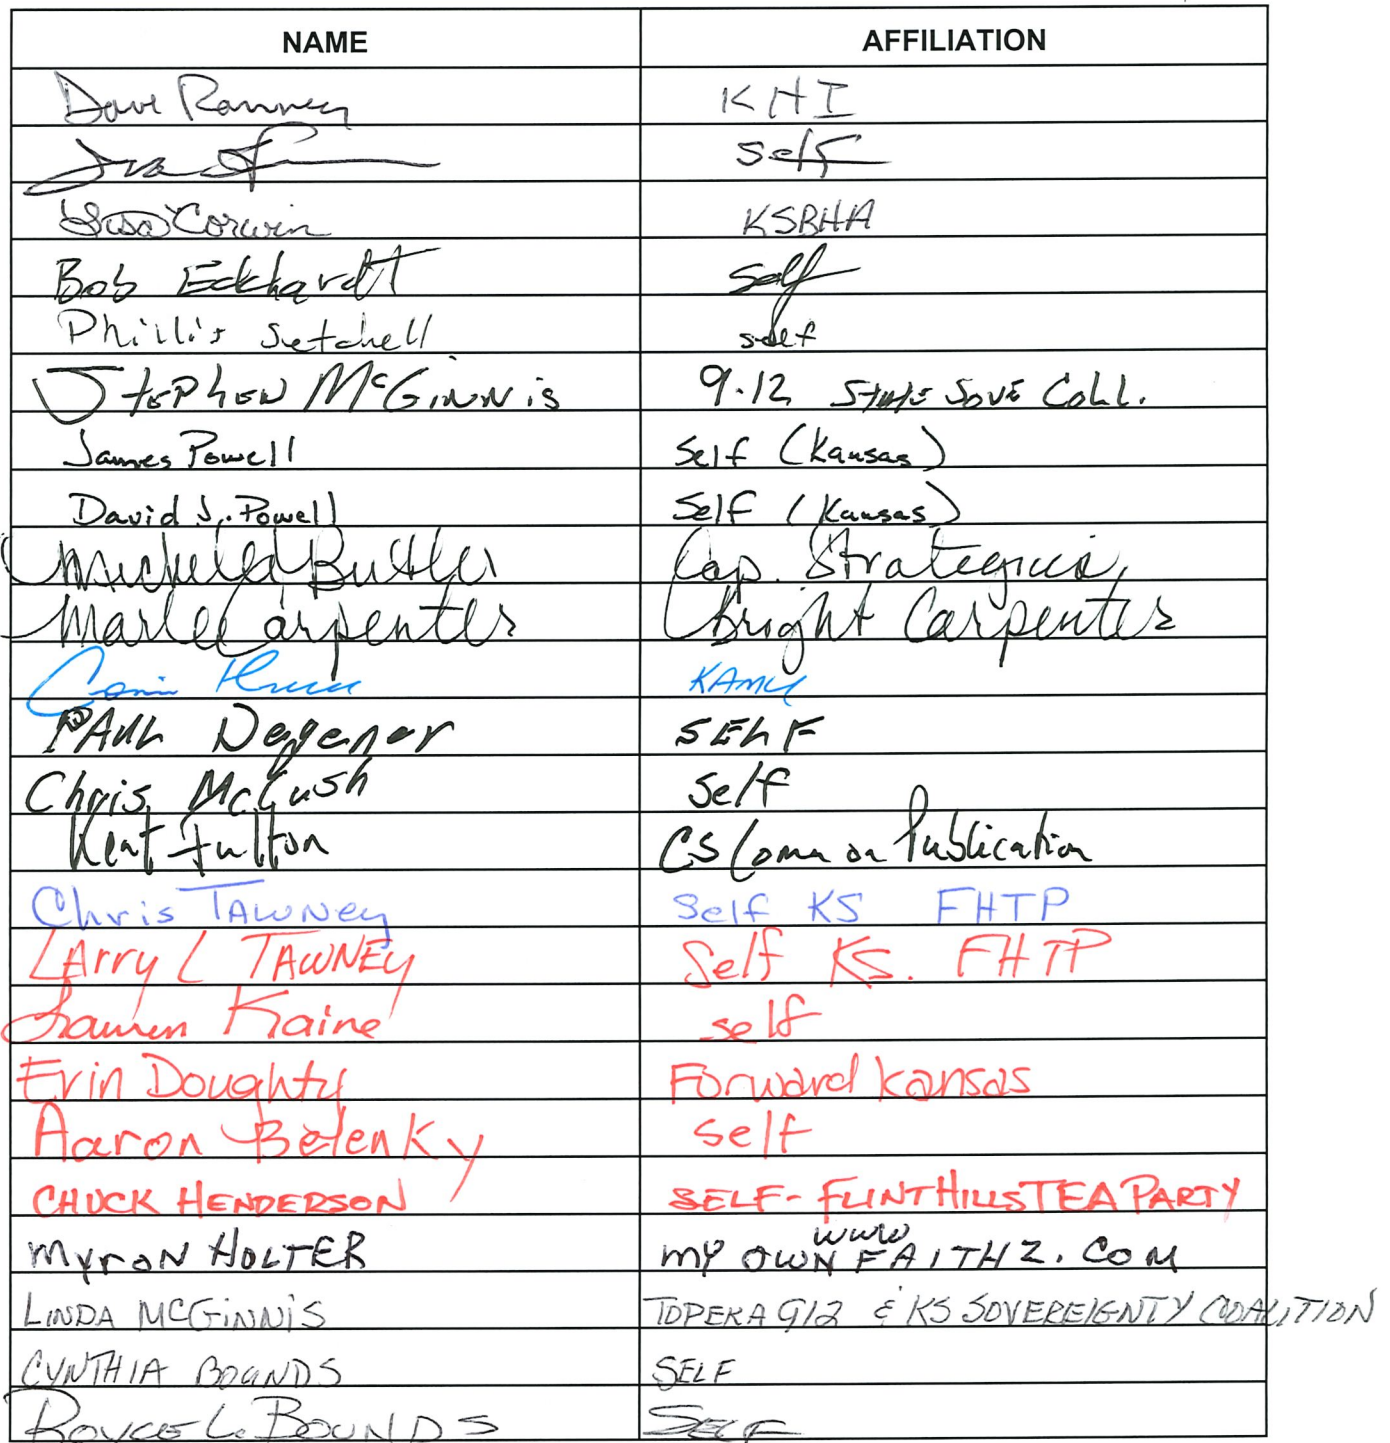 NAME AFFILIATION
Dave Ranney KHI
self
Corwin KSBHA
Bob Eckhardt Self
Phillis Setchell self
Stephen McGinnis 9.12 State Sove Coll.
James Powell Self (Kansas)
David J. Powell Self (Kansas)
Michele Butler Cap. Strategies
Marlee Carpenter Bright Carpenter
KAMU
PAUL Degener SELF
Chris McCush Self
Kent Fulton CS Publication
Chris TAWNey Self KS FHTP
LArry L TAWNEy Self KS. FHTP
Lauren Kaine self
Erin Doughty Forward Kansas
Aaron Belenky Self
CHUCK HENDERSON SELF- FLINT HILLS TEA PARTY
www
Myron HOLTER MY OWN FAITH2.COM
LINDA MCGINNIS TOPEKA 912 & KS SOVEREIGNTY COALITION
CYNTHIA BOUNDS SELF
ROYCE L. BOUNDS SELF